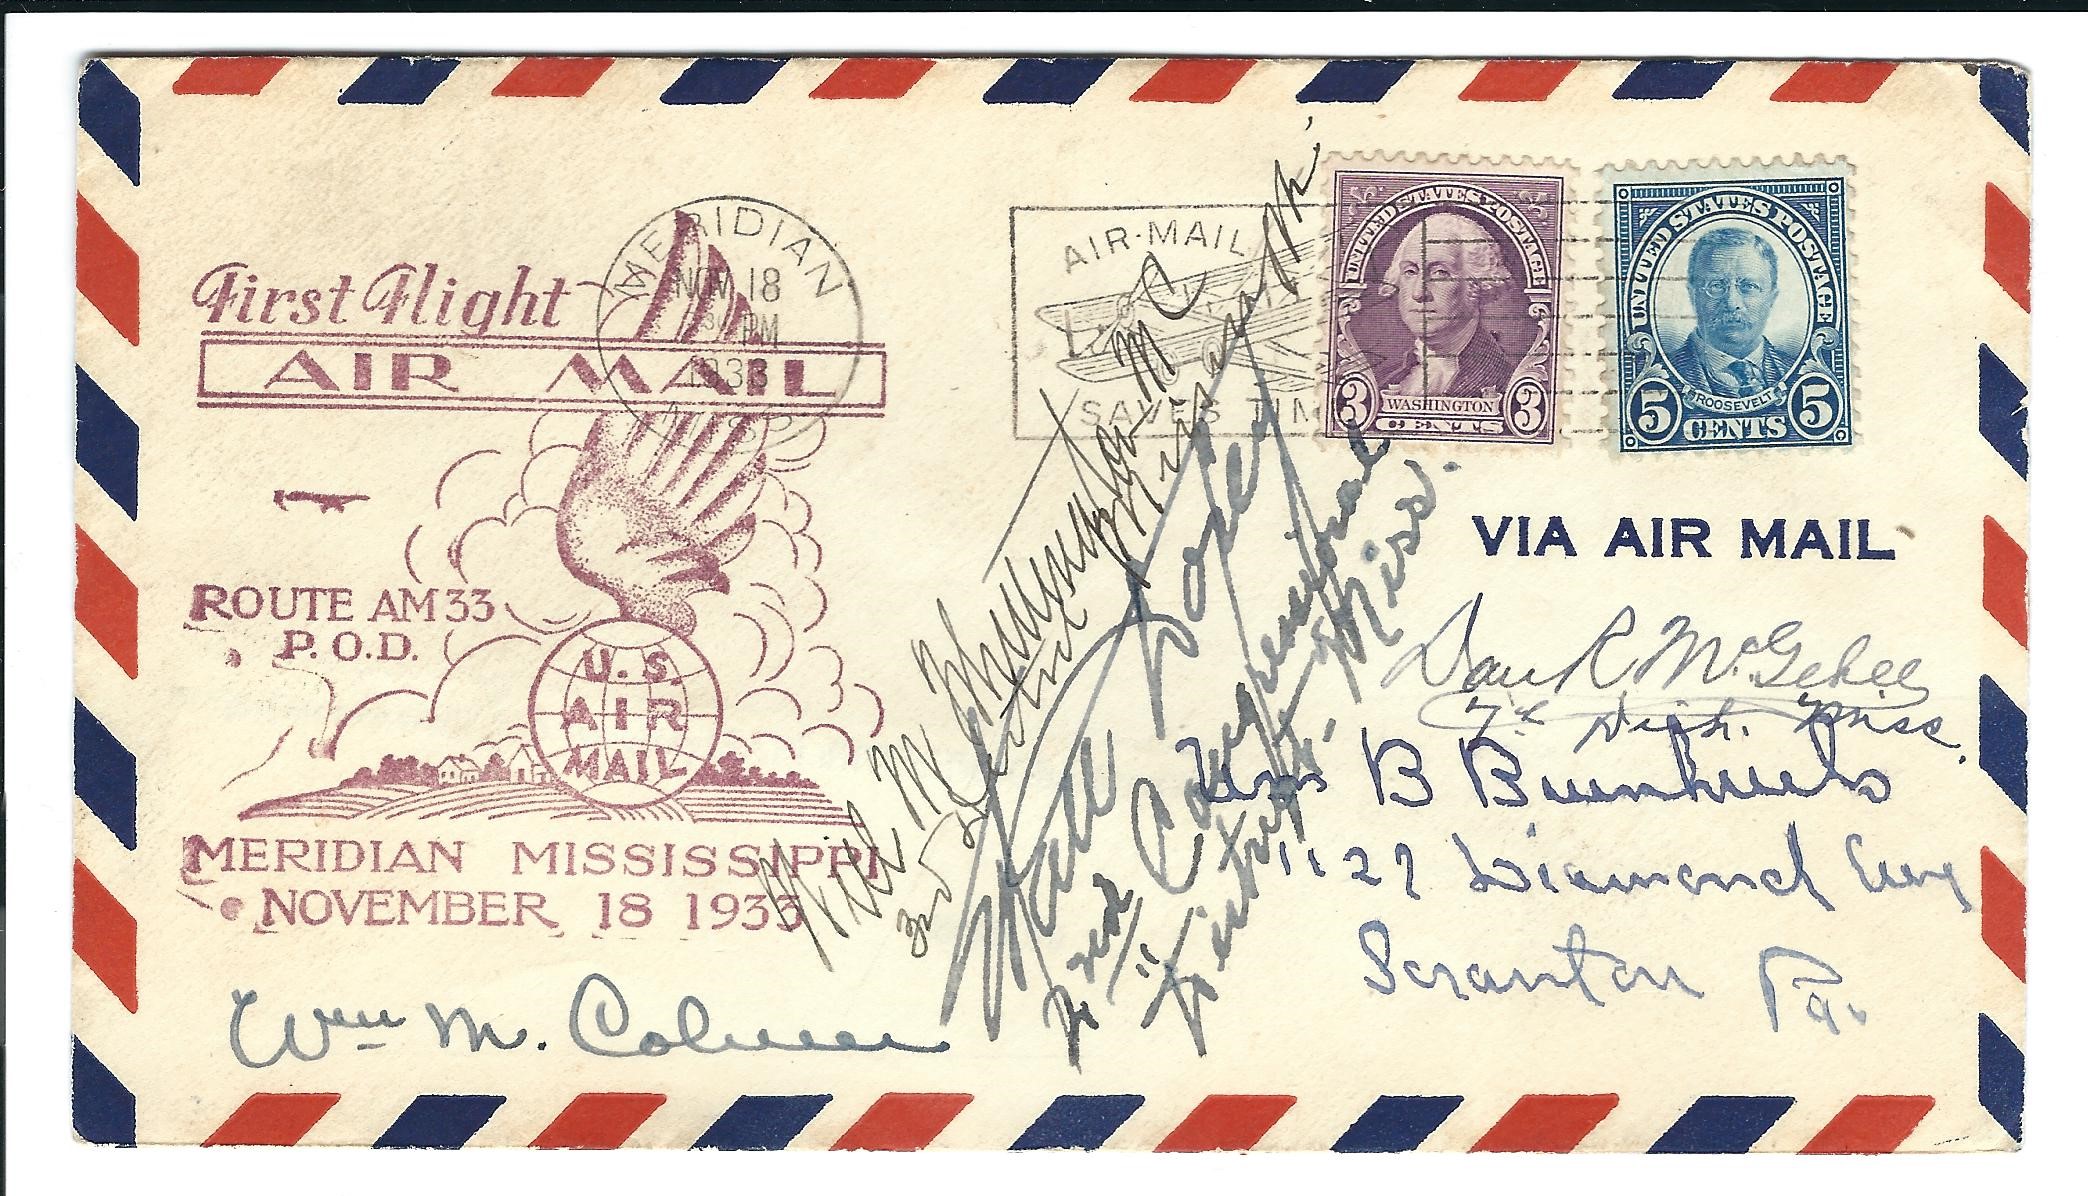 First Flight
AIR MAIL
ROUTE AM 33
P.O.D.
U.S.
AIR
MAIL
MERIDIAN MISSISSIPPI
NOVEMBER 18 1933
MERIDIAN
NOV 18
PM
1933
MISS.
AIR-MAIL
SAVES TIM
UNITED STATES POSTAGE
3 WASHINGTON 3
CENTS
UNITED STATES POSTAGE
ROOSEVELT
5 CENTS 5
VIA AIR MAIL
Dan R McGehee
7th Dist. Miss.
B
1127 Diamond Ave
Scranton Pa.
Will M Whittington M C
3rd District Miss
Wall Doxey
2nd Congressional
District Miss.
Wm M. Colmer